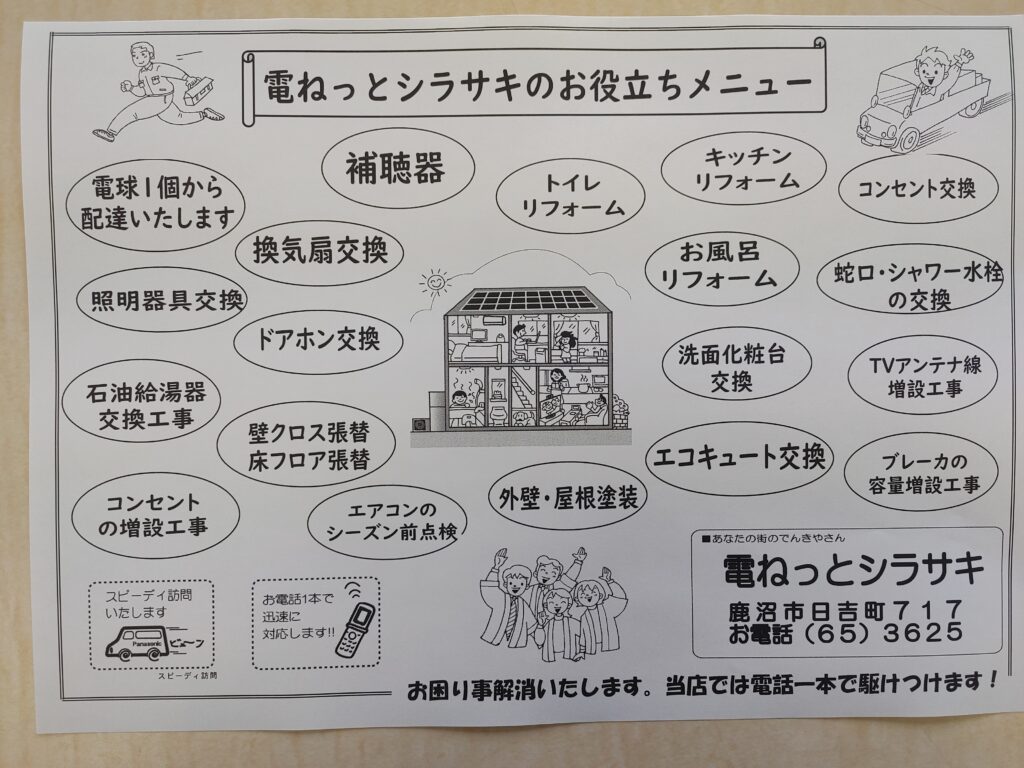 電ねっとシラサキのお役立ちメニュー
電球1個から
配達いたします
補聴器
トイレ
リフォーム
キッチン
リフォーム
コンセント交換
換気扇交換
お風呂
リフォーム
蛇口・シャワー水栓
の交換
照明器具交換
ドアホン交換
洗面化粧台
交換
TVアンテナ線
増設工事
石油給湯器
交換工事
壁クロス張替
床フロア張替
エコキュート交換
ブレーカの
容量増設工事
コンセント
の増設工事
エアコンの
シーズン前点検
外壁・屋根塗装
スピーディ訪問
いたします
Panasonic
ビューン
スピーディ訪問
お電話1本で
迅速に
対応します!!
■あなたの街のでんきやさん
電ねっとシラサキ
鹿沼市日吉町717
お電話(65)3625
お困り事解消いたします。当店では電話一本で駆けつけます!